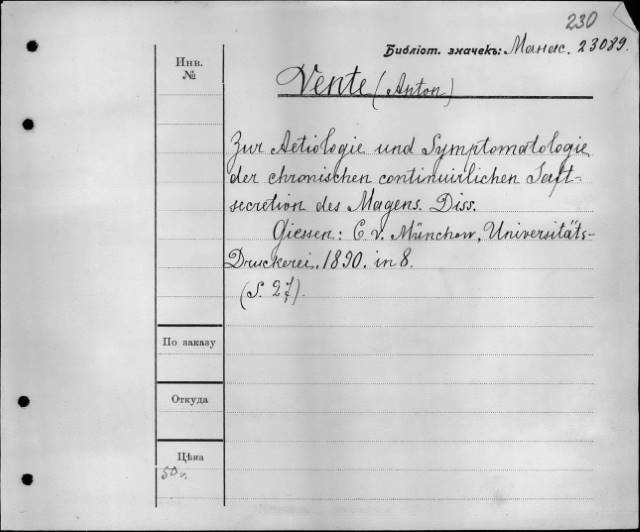 230
Библіот. значекъ: Манас. 23089.
Инв.
№
Vente (Anton)
Zur Aetiologie und Symptomatologie
der chronischen continuirlichen Saft-
secretion des Magens. Diss.
Giessen: C. v. Münchow, Universitäts-
Druckerei. 1890. in 8.
(S. 27).
По заказу
Откуда
Цѣна
50